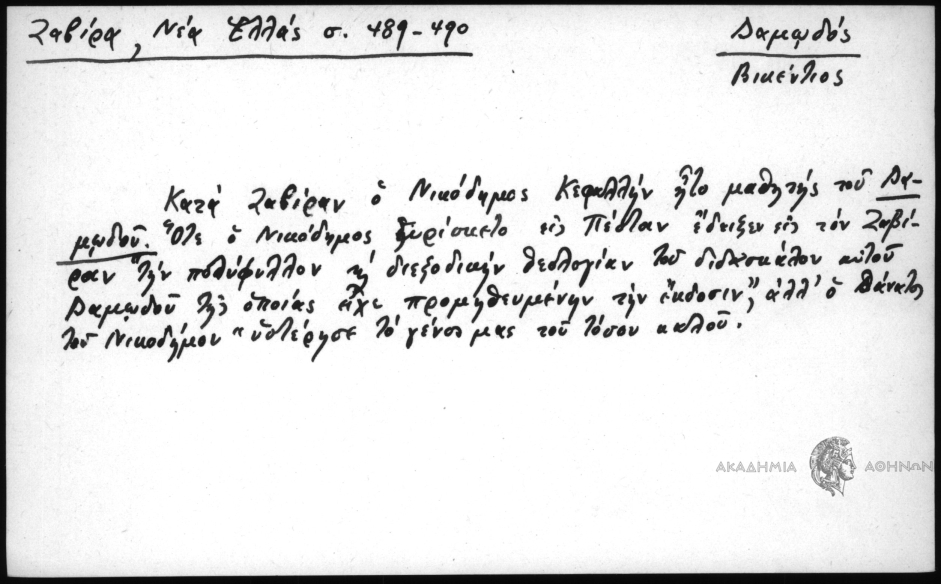 Ζαβίρα, Νέα Ἑλλάς σ. 489-490
Δαμωδός
Βικέντιος
Κατά Ζαβίραν ὁ Νικόδημος Κεφαλλήν ἦτο μαθητής τοῦ Δα-
μωδοῦ. Ὅτε ὁ Νικόδημος εὑρίσκετο εἰς Πέσταν ἔδειξεν εἰς τόν Ζαβί-
ραν "τήν πολύφυλλον κ διεξοδικήν θεολογίαν τοῦ διδασκάλου αὐτοῦ
Δαμωδοῦ τῆς ὁποίας εἶχε προμηθευμένην τήν ἔκδοσιν", ἀλλ' ὁ θάνατος
τοῦ Νικοδήμου "ὑστέρησε τό γένος μας τοῦ τόσου καλοῦ.
ΑΚΑΔΗΜΙΑ ΑΘΗΝΩΝ